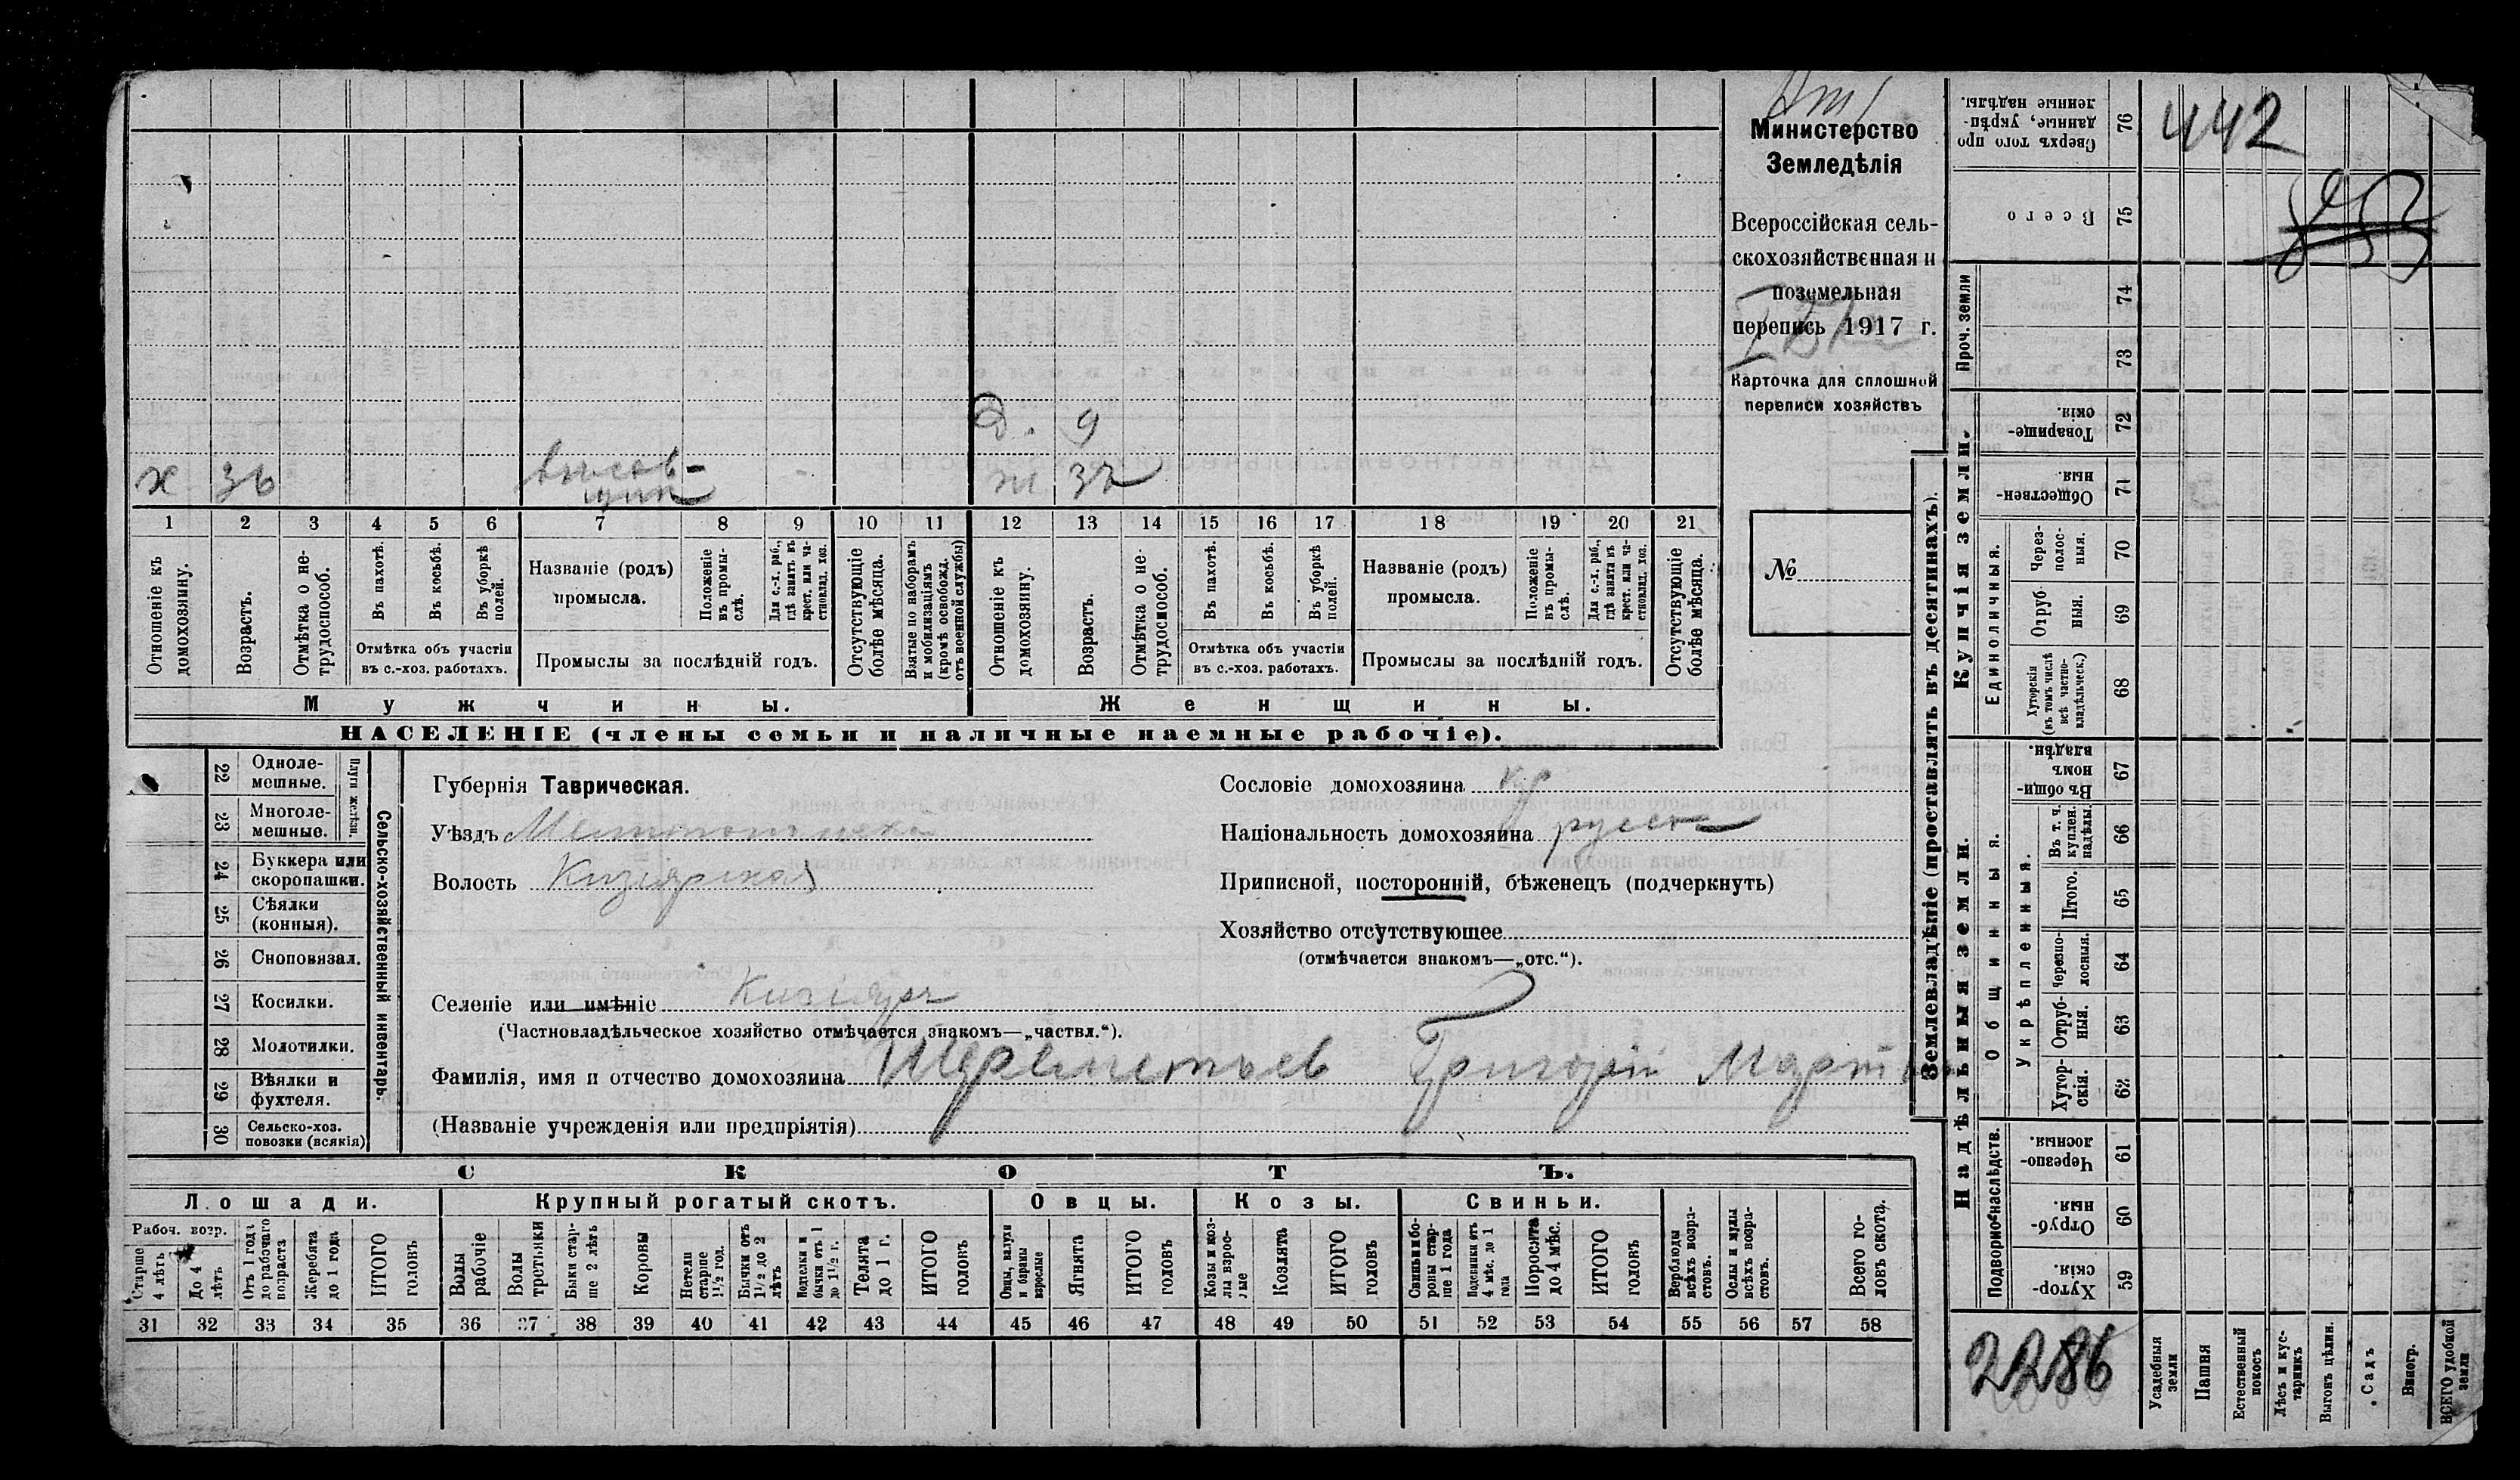 Министерство
Земледѣлія
Всероссійская сель-
скохозяйственная и
поземельная
перепись 1917 г.
Карточка для сплошной
переписи хозяйствъ
№
442
2286
д. 9
х 36
ж 32
1 2 3 4 5 6 7 8 9 10 11 12 13 14 15 16 17 18 19 20 21
Отношеніе къ домохозяину.
Возрастъ.
Отмѣтка о не-трудоспособ.
Въ пахотѣ.
Въ косьбѣ.
Въ уборкѣ полей.
Отмѣтка объ участіи
въ с.-хоз. работахъ.
Названіе (родъ)
промысла.
Положеніе въ промы-слѣ.
Для с.-х. раб., гдѣ занятъ въ крест. или ча-стновлад. хоз.
Промыслы за послѣдній годъ.
Отсутствующіе болѣе мѣсяца.
Взятые по наборамъ и мобилизаціямъ (кромѣ освобожд. отъ военной службы)
Отношеніе къ домохозяину.
Возрастъ.
Отмѣтка о не-трудоспособ.
Въ пахотѣ.
Въ косьбѣ.
Въ уборкѣ полей.
Отмѣтка объ участіи
въ с.-хоз. работахъ.
Названіе (родъ)
промысла.
Положеніе въ промы-слѣ.
Для с.-х. раб., гдѣ занята въ крест. или ча-стновлад. хоз.
Промыслы за послѣдній годъ.
Отсутствующіе болѣе мѣсяца.
Мужчины.
Женщины.
НАСЕЛЕНІЕ (члены семьи и наличные наемные рабочіе).
22 Одноле-мешные.
23 Многоле-мешные.
Плуги желѣзн.
24 Буккера или скоропашки.
25 Сѣялки (конныя).
26 Сноповязал.
27 Косилки.
28 Молотилки.
29 Вѣялки и фухтеля.
30 Сельско-хоз. повозки (всякія)
Сельско-хозяйственный инвентарь.
Губернія Таврическая.
Уѣздъ Мелитопольскій
Волость Кизіярская
Селеніе или имѣніе Кизіяръ
(Частновладѣльческое хозяйство отмѣчается знакомъ—„частвл.“).
Фамилія, имя и отчество домохозяина Шереметьев Григорій Март
(Названіе учрежденія или предпріятія)
Сословіе домохозяина кр
Національность домохозяина русск
Приписной, посторонній, бѣженецъ (подчеркнуть)
Хозяйство отсутствующее
(отмѣчается знакомъ—„отс.“).
СКОТЪ.
Лошади.
Крупный рогатый скотъ.
Овцы.
Козы.
Свиньи.
Рабоч. возр.
Старше 4 лѣтъ
До 4 лѣтъ
Отъ 1 года до рабочаго возраста
Жеребята до 1 года
ИТОГО головъ
Волы рабочіе
Волы третьяки
Быки стар-ше 2 лѣтъ
Коровы
Нетели старше 1½ год.
Бычки отъ 1½ до 2 лѣтъ
Подтелки и бычки отъ 1 до 1½ г.
Телята до 1 г.
ИТОГО головъ
Овцы, валухи и бараны взрослые
Ягнята
ИТОГО головъ
Козы и коз-лы взрос-лые
Козлята
ИТОГО головъ
Свиньи и бо-ровы стар-ше 1 года
Подсвинки отъ 4 мѣс. до 1 года
Поросята до 4 мѣс.
ИТОГО головъ
Верблюды всѣхъ возра-стовъ.
Ослы и мулы всѣхъ возра-стовъ.
Всего го-ловъ скота.
31 32 33 34 35 36 37 38 39 40 41 42 43 44 45 46 47 48 49 50 51 52 53 54 55 56 57 58
Землевладѣніе (проставлять въ десятинахъ).
Надѣльныя земли.
Купчія земли.
Проч. земли
Подворно-наслѣдств.
Общинныя.
Укрѣпленныя.
Единоличныя.
Хутор-скія. 59
Отруб-ныя 60
Черезпо-лосныя. 61
Хутор-скія. 62
Отруб-ныя. 63
Черезпо-лосныя. 64
Итого. 65
Въ т. ч. куплен. надѣлы. 66
Въ общи-номъ владѣн. 67
Хуторскія (въ томъ числѣ всѣ частно-владѣльческ.) 68
Отруб-ныя. 69
Через-полос-ныя. 70
Обществен-ныя 71
Товарище-скія. 72
73
74
Всего 75
Сверхъ того про данные, укрѣп-ленные надѣлы. 76
Усадебныя земли
Пашня
Естественный покосъ
Лѣсъ и кус-тарникъ
Выгонъ цѣлин.
Садъ
Виногр.
ВСЕГО удобной земли